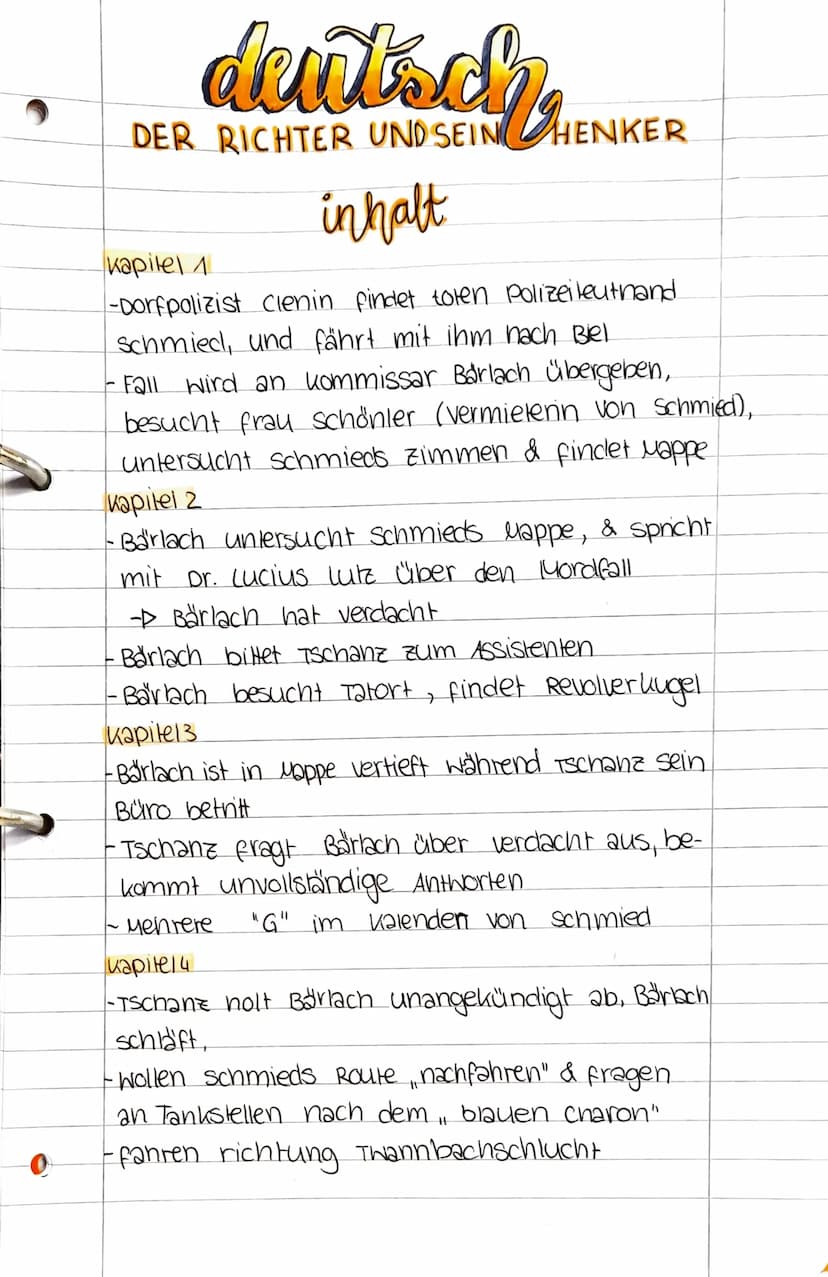 deutsch
DER RICHTER UND SEIN HENKER
inhalt
Kapitel 1
-Dorfpolizist Clenin findet toten Polizeileutnand
Schmied, und fährt mit ihm nach Biel
- Fall wird an Kommissar Bärlach übergeben,
besucht Frau Schönler (Vermieterin von Schmied),
untersucht Schmieds Zimmen & findet Mappe
Kapitel 2
- Bärlach untersucht Schmieds Mappe, & spricht
mit Dr. Lucius Lutz über den Mordfall
-▷ Bärlach hat verdacht
- Bärlach bittet Tschanz zum Assistenten
- Bärlach besucht Tatort, findet Revolverkugel
Kapitel 3
- Bärlach ist in Mappe vertieft während Tschanz sein
Büro betritt
- Tschanz fragt Bärlach über verdacht aus, be-
kommt unvollständige Antworten
- Mehrere "G" im Kalender von Schmied
Kapitel 4
- Tschanz holt Bärlach unangekündigt ab, Bärlach
schläft,
- Wollen Schmieds Route „nachfahren" & fragen
an Tankstellen nach dem „blauen Charon"
- fahren richtung Twannbachschlucht